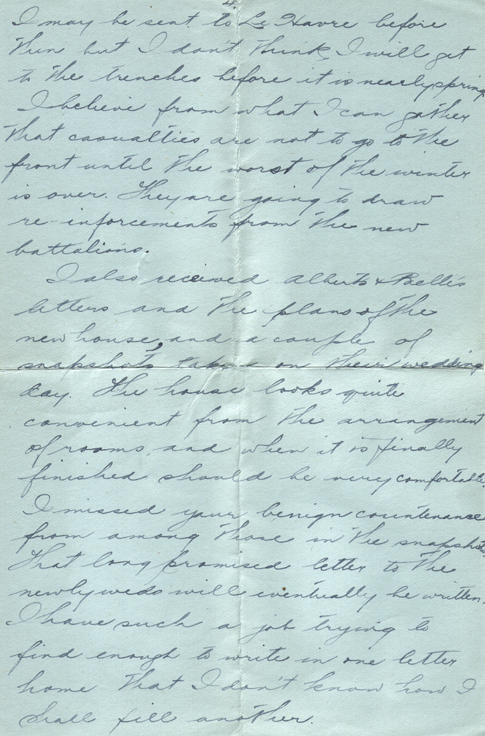 I may be sent to Le Havre before
then but I don't think I will get
to the trenches before it is nearly spring
I believe from what I can gather
that casualties are not to go to the
front until the worst of the winter
is over. They are going to draw
re-inforcements from the new
battalions.
I also received Alberts & Bell's
letters and the plans of the
new house, and a couple of
snapshots taken on their wedding
day. The house looks quite
convenient from the arrangement
of rooms and when it is finally
finished should be very comfortable.
I missed your benign countenance
from among those in the snapshot.
That long promised letter to the
newlyweds will eventually be written.
I have such a job trying to
find enough to write in one letter
home that I don't know how I
shall fill another.